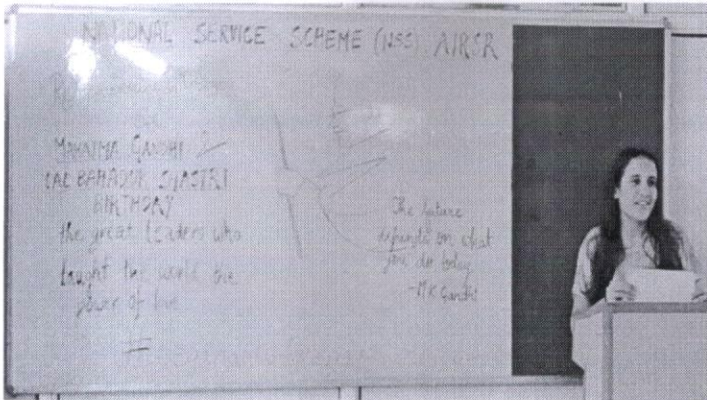 NATIONAL SERVICE SCHEME (NSS) AIRSR
MAHATMA GANDHI
LAL BAHADUR SHASTRI
BIRTHDAY
the great Leaders who
taught the world the
power of love
The future
depends on what
you do today
-M K Gandhi